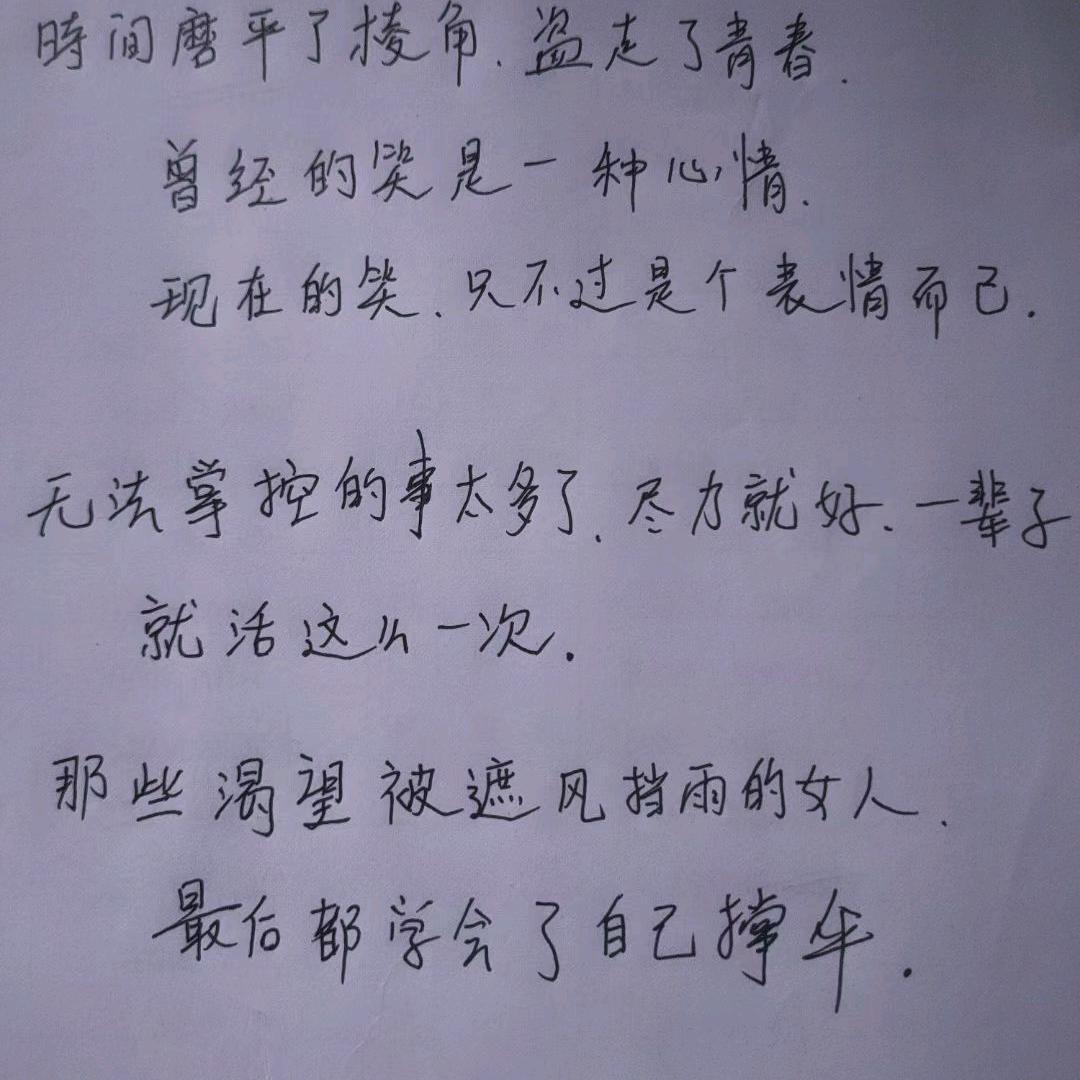 時间磨平了棱角、盗走了青春.
曾经的笑是一种心情.
现在的笑、只不过是个表情而己.
无法掌控的事太多了、尽力就好、一辈子
就活这么一次.
那些渴望被遮风挡雨的女人、
最后都学会了自己撑伞.